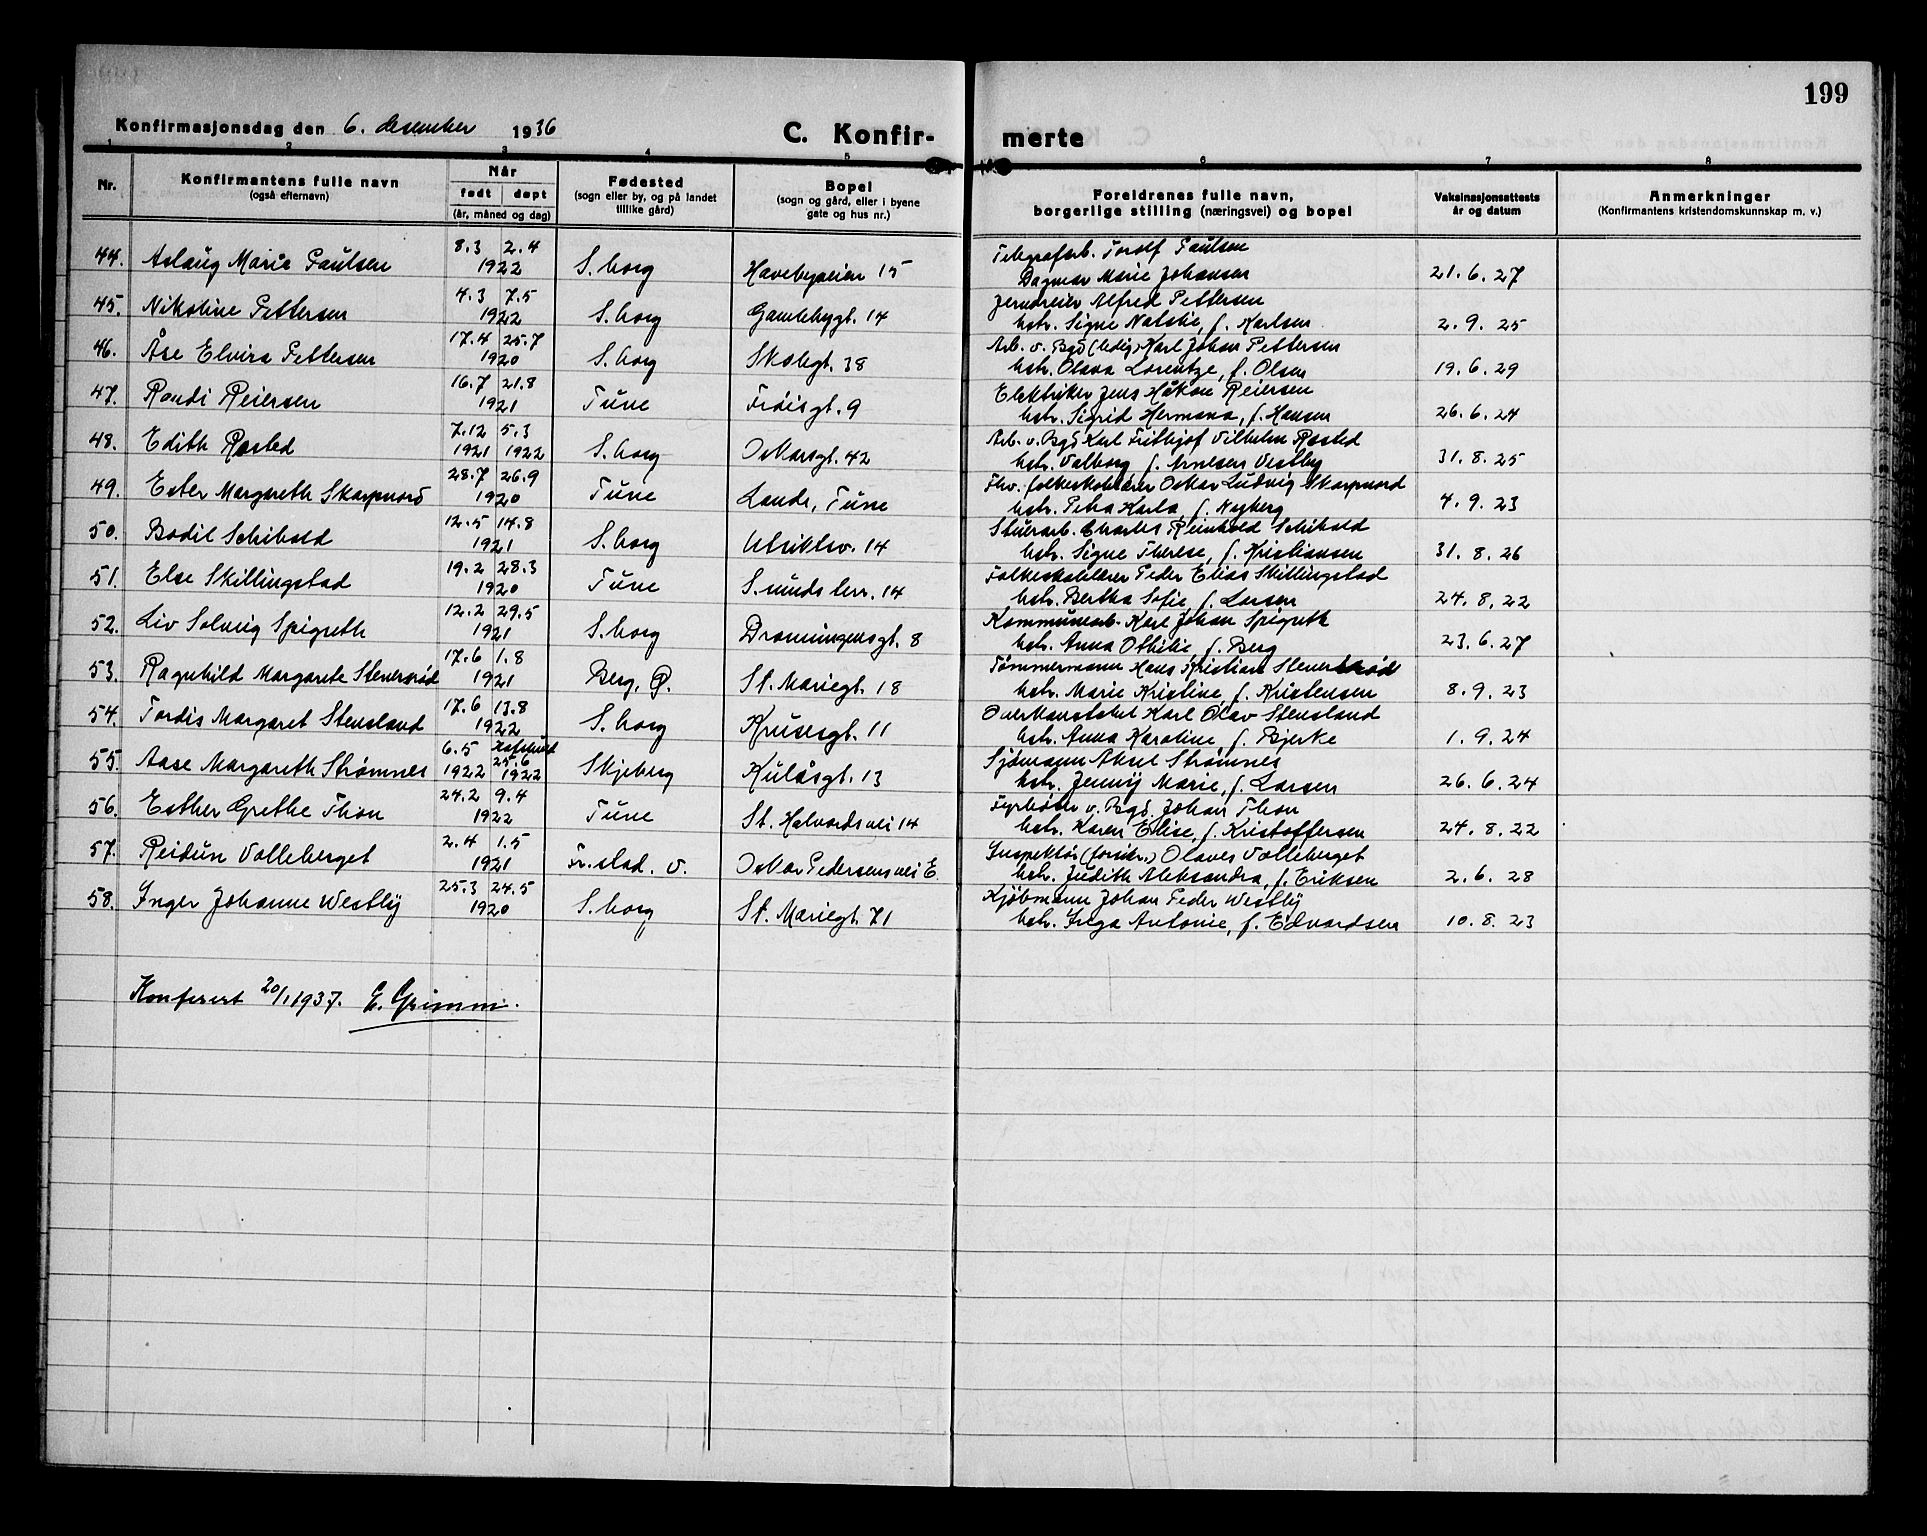 199
Konfirmasjonsdag den 6. desember 1936
C. Konfir-merte
1 2 3 4 5 6 7 8
Nr.
Konfirmantens fulle navn
(også efternavn)
Når
født døpt
(år, måned og dag)
Fødested
(sogn eller by, og på landet
tillike gård)
Bopel
(sogn og gård, eller i byene
gate og hus nr.)
Foreldrenes fulle navn,
borgerlige stilling (næringsvei) og bopel
Vaksinasjonsattests
år og datum
Anmerkninger
(Konfirmantens kristendomskunnskap m. v.)
44. Aslaug Marie Paulsen 8.3 2.4 1922 S.borg Havebyveien 15 Telegrafarb. Torolf Paulsen
Dagmar Marie Johansen 21.6.27
45. Nikoline Pettersen 4.3 7.5 1922 S.borg Gamlebygt. 14 Jerndreier Alfred Pettersen
hstr. Signe Natalie, f. Karlsen 2.9.25
46. Åse Elvira Pettersen 17.4 25.7 1920 S.borg Skolegt. 38 Arb. v. Bgd (ledig) Karl Johan Pettersen
hstr. Olava Lorentze, f. Olsen 19.6.29
47. Randi Reiersen 16.7 21.8 1921 Tune Frøisgt. 9 Elektriker Jens Håkon Reiersen
hstr. Sigrid Hermana, f. Hansen 26.6.24
48. Edith Røsted 7.12 5.3 1921 1922 S.borg Oskarsgt. 42 Arb. v. Bgd Karl Frithjof Vilhelm Røsted
hstr. Valborg f. Arnesen Vestby 31.8.25
49. Ester Margareth Skarpnord 28.7 26.9 1920 Tune Lande, Tune Fhv. folkeskolelærer Oskar Ludvig Skarpnord
hstr. Petra Karla, f. Nyberg 4.9.23
50. Bodil Schibold 12.5 14.8 1921 S.borg Utsiktsv. 14 Stuerarb. Charles Reinhold Schibold
hstr. Signe Therese, f. Kristiansen 31.8.26
51. Else Skillingstad 19.2 28.3 1920 Tune S.sunds terr. 14 Folkeskolelærer Peder Elias Skillingstad
hstr. Bertha Sofie, f. Larsen 24.8.22
52. Liv Solveig Spigseth 12.2 29.5 1921 S.borg Dronningensgt. 8 Kommunearb. Karl Johan Spigseth
hstr. Anna Othilie, f. Berg 23.6.27
53. Ragnhild Margarete Stenersrød 17.6 1.8 1921 Berg, Ø. St. Mariegt. 18 Tømmermann Hans Kristian Stenersrød
hstr. Marie Kristine, f. Kristensen 8.9.23
54. Tordis Margaret Stensland 17.6 13.8 1922 S.borg Krusesgt. 11 Overkonstabel Karl Olav Stensland
hstr. Anna Karoline, f. Bjerke 1.9.24
55. Aase Margareth Strømnes 6.5 1922 Hafslund 25.6 1922 Skjeberg Kulåsgt. 13 Sjømann Aksel Strømnes
hstr. Jenny Marie, f. Larsen 26.6.24
56. Esther Grethe Thon 24.2 9.4 1922 Tune St. Halvardsvei 14 Fyrbøter v. Bgd. Johan Thon
hstr. Karen Elise, f. Kristoffersen 24.8.22
57. Reidun Volleberget 2.4 1.5 1921 Fr.stad. V. Oskar Pedersens vei E. Inspektør (forsikr.) Olaves Volleberget
hstr. Judith Aleksandra, f. Eriksen 2.6.28
58. Inger Johanne Westby 25.3 24.5 1920 S.borg St. Mariegt. 71 Kjøbmann Johan Peder Westby
hstr. Inga Antonie, f. Edvardsen 10.8.23
Konferert 20/1 1937. E. Grimm.